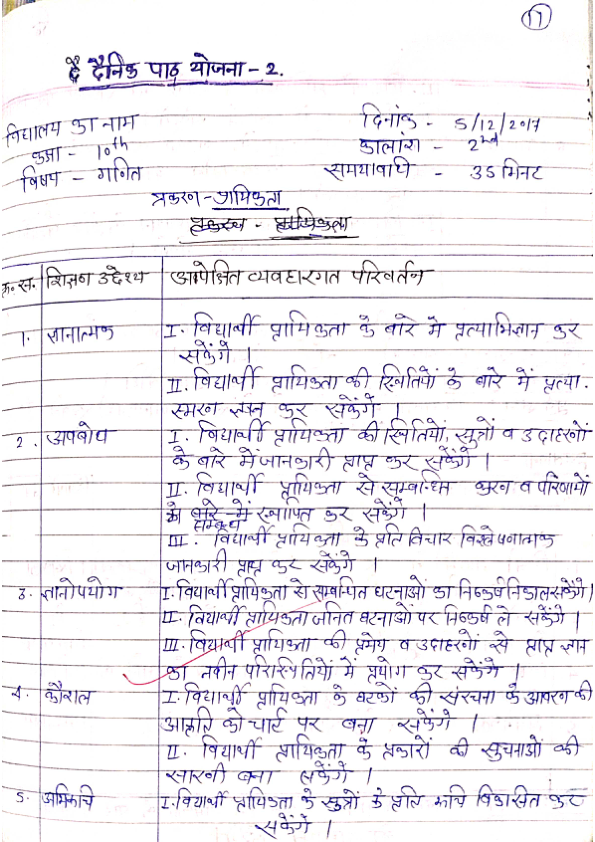 17
दैनिक पाठ योजना - 2.
विद्यालय का नाम
दिनांक - 5/12/2017
कक्षा - 10th
कालांश - 2nd
विषय - गणित
समयावधि - 35 मिनट
प्रकरण - प्रायिकता
प्रकरण - प्रायिकता
क्र.स. शिक्षण उद्देश्य अपेक्षित व्यवहारगत परिवर्तन
1. ज्ञानात्मक I. विद्यार्थी प्रायिकता के बारे में प्रत्याभिज्ञान कर
सकेंगे ।
II. विद्यार्थी प्रायिकता की स्थितियों के बारे में प्रत्या.
स्मरण कर सकेंगे ।
2. अवबोध I. विद्यार्थी प्रायिकता की स्थितियों, सुत्रों व उदाहरणों
के बारे में जानकारी प्राप्त कर सकेंगे ।
II. विद्यार्थी प्रायिकता से सम्बन्धित कारण व परिणामों
के बारे में सम्बन्ध स्थापित कर सकेंगे ।
III. विद्यार्थी प्रायिकता के प्रति विचार विश्लेषणात्मक
जानकारी प्राप्त कर सकेंगे ।
3. ज्ञानोपयोग I. विद्यार्थी प्रायिकता से सम्बन्धित घटनाओं का निष्कर्ष निकाल सकेंगे ।
II. विद्यार्थी प्रायिकता जनित घटनाओं पर निष्कर्ष ले सकेंगे ।
III. विद्यार्थी प्रायिकता की प्रमेय व उदाहरणों से प्राप्त ज्ञान
का नवीन परिस्थितियों में प्रयोग कर सकेंगे ।
4. कौशल I. विद्यार्थी प्रायिकता के घटकों की संरचना के आवरण की
आकृति को चार्ट पर बना सकेंगे ।
II. विद्यार्थी प्रायिकता के प्रकारों की सुचनाओं की
सारणी बना सकेंगे ।
5. अभिरूचि I. विद्यार्थी प्रायिकता के सुत्रों के प्रति रूचि विकसित कर
सकेंगे ।